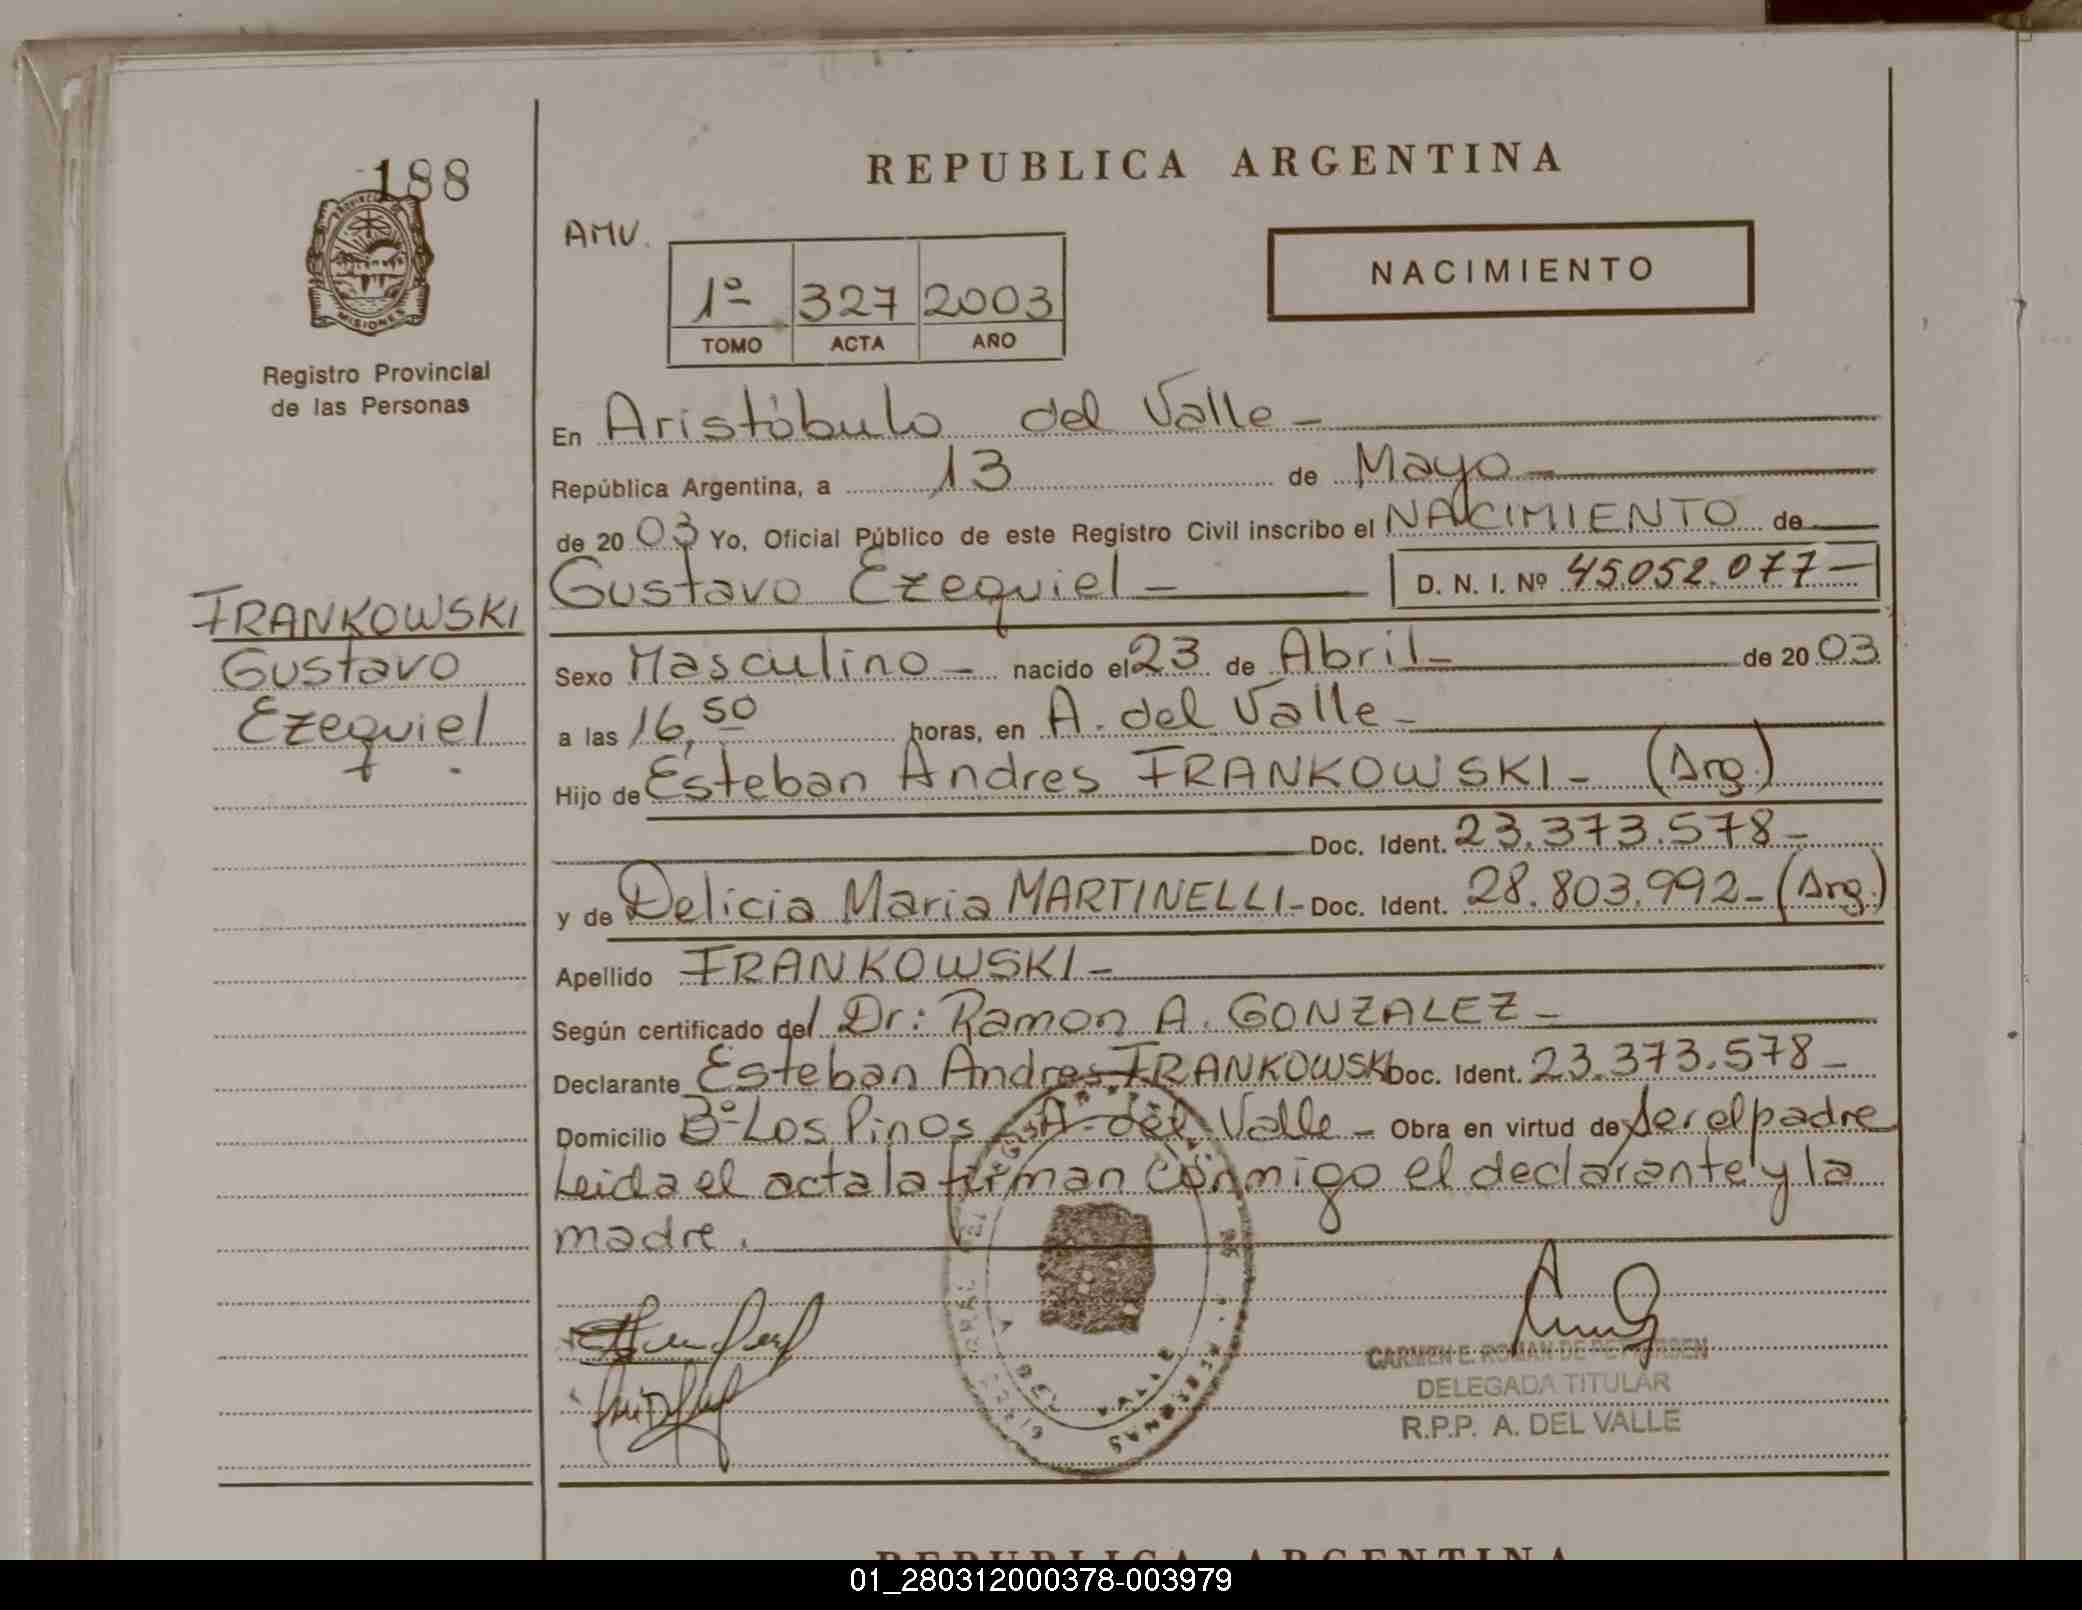 188
PROVINCIA DE
MISIONES
Registro Provincial
de las Personas
REPUBLICA ARGENTINA
AMV.
1º 327 2003
TOMO ACTA AÑO
NACIMIENTO
En Aristóbulo del Valle -
República Argentina, a 13 de Mayo
de 2003 Yo, Oficial Público de este Registro Civil inscribo el NACIMIENTO de
Gustavo Ezequiel - D. N. I. Nº 45.052.077-
FRANKOWSKI
Gustavo
Ezequiel
Sexo Masculino - nacido el 23 de Abril - de 2003
a las 16,50 horas, en A. del Valle -
Hijo de Esteban Andres FRANKOWSKI - (Arg.)
Doc. Ident. 23.373.578-
y de Delicia Maria MARTINELLI - Doc. Ident. 28.803.992- (Arg.)
Apellido FRANKOWSKI -
Según certificado del Dr: Ramon A. GONZALEZ -
Declarante Esteban Andres FRANKOWSKI Doc. Ident. 23.373.578-
Domicilio Bº Los Pinos - A. del Valle - Obra en virtud de ser el padre
Leida el acta la firman conmigo el declarante y la
madre.
DEL VALLE
PERSONAS
CARMEN E. ROMAN DE PETTERSEN
DELEGADA TITULAR
R.P.P. A. DEL VALLE
REPUBLICA ARGENTINA
01_280312000378-003979